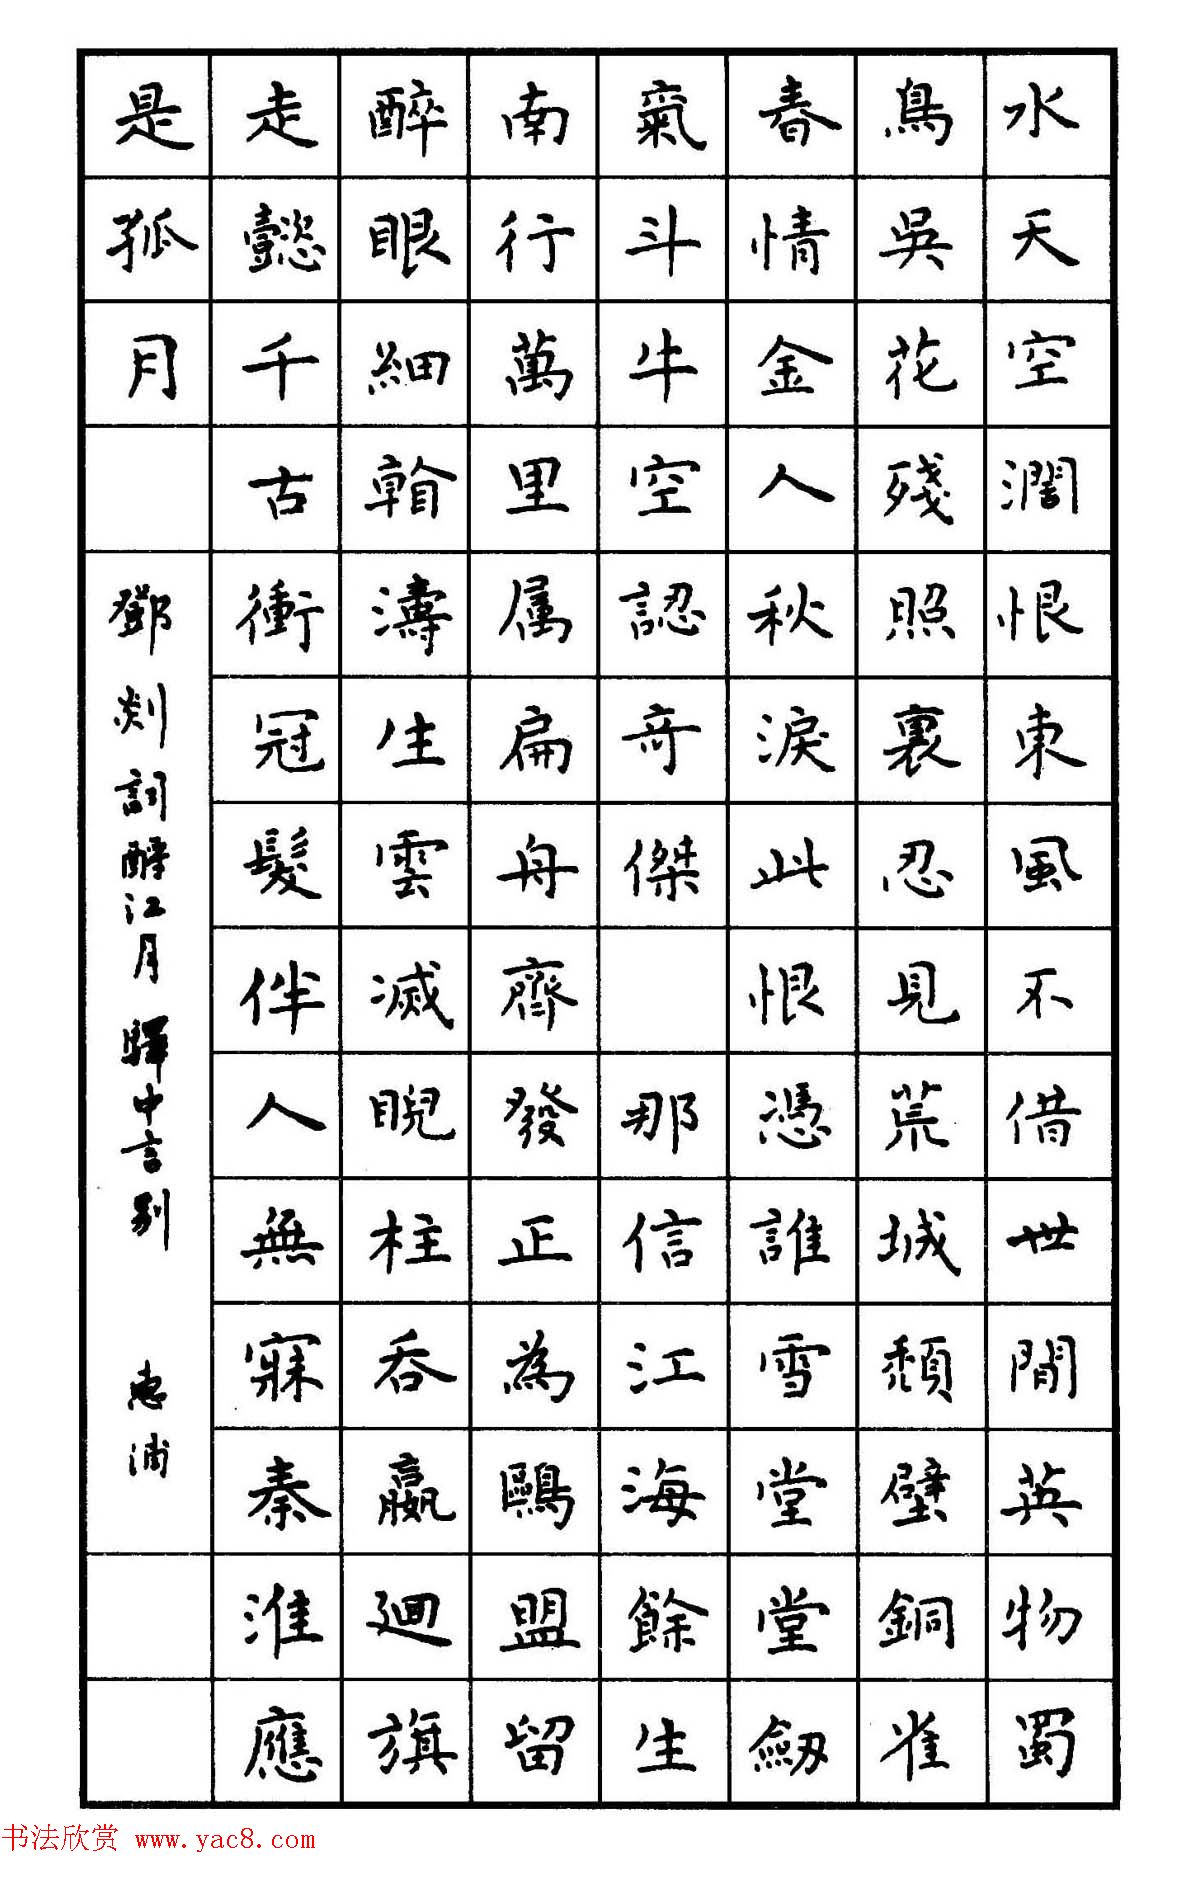 水天空濶恨東風不借世間英物蜀
鳥吳花殘照裏忍見荒城頹壁銅雀
春情金人秋淚此恨憑誰雪堂堂劒
氣斗牛空認奇傑 那信江海餘生
南行萬里属扁舟齊發正為鷗盟留
醉眼細看濤生雲滅睨柱吞嬴廻旗
走懿千古衝冠髮伴人無寐秦淮應
是孤月
鄧剡詞酹江月驛中言别 惠浦
书法欣赏 www.yac8.com